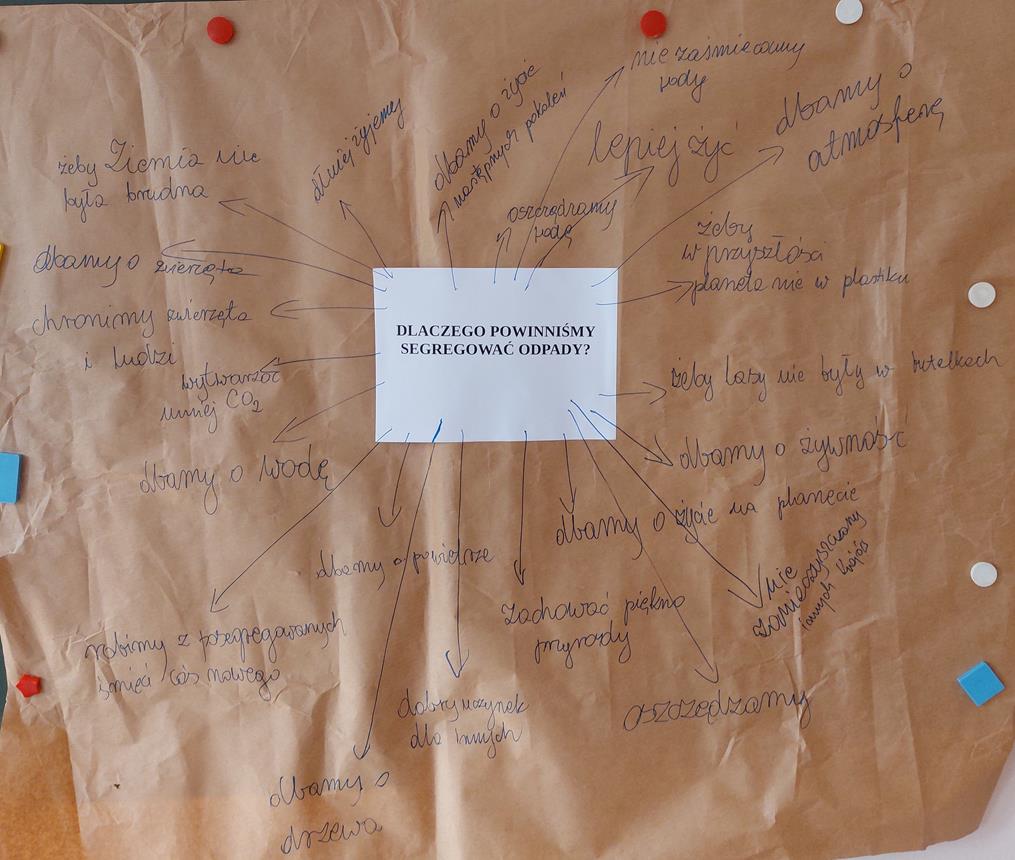 DLACZEGO POWINNIŚMY
SEGREGOWAĆ ODPADY?
żeby Ziemia nie
była brudna
dłużej żyjemy
dbamy o życie
następnych pokoleń
nie zaśmiecamy
wody
oszczędzamy
wodę
lepiej żyć
dbamy o
atmosferę
żeby
w przyszłości
planeta nie w plastiku
żeby lasy nie były w butelkach
dbamy o żywność
dbamy o życie na planecie
nie
zanieczyszczamy
innych krajów
oszczędzamy
zachować piękno
przyrody
dobry uczynek
dla innych
dbamy o powietrze
dbamy o
drzewa
robimy z posegregowanych
śmieci coś nowego
dbamy o wodę
wytwarzać
mniej CO₂
chronimy zwierzęta
i ludzi
dbamy o zwierzęta